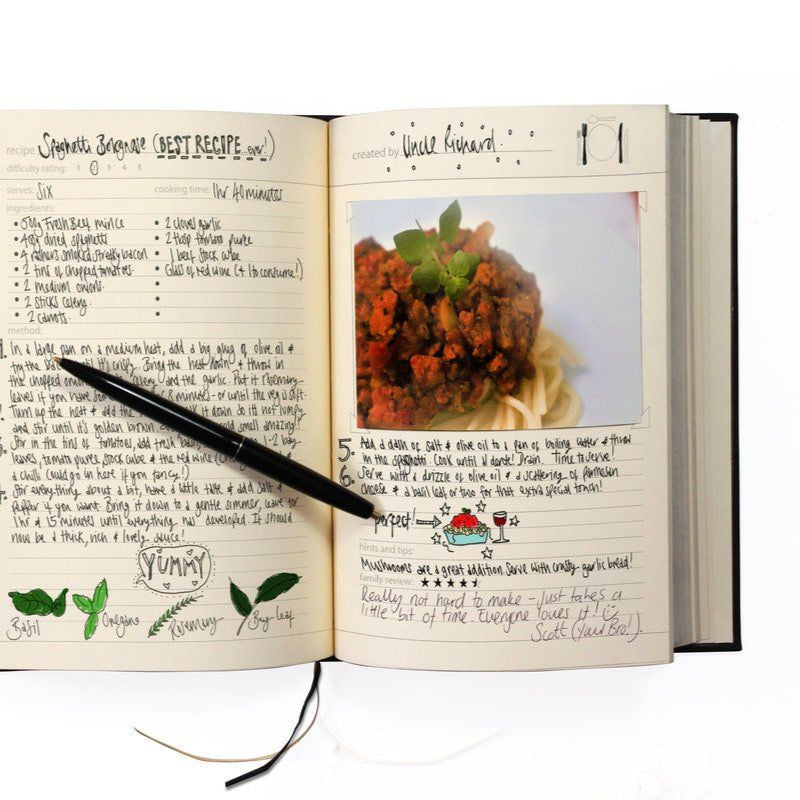 recipe Spaghetti Bolognese (BEST RECIPE ever!)
difficulty rating: 1 2 3 4 5
serves: Six
cooking time: 1hr 40 minutes
ingredients:
• 500g Fresh Beef mince
• 400g dried spaghetti
• 4 rashers smoked streaky bacon
• 2 tins of chopped tomatoes.
• 2 medium onions.
• 2 sticks celery.
• 2 carrots.
• 2 cloves garlic
• 2 tbsp tomato puree
• 1 beef stock cube
• Glass of red wine (+ 1 to consume!)
method:
1. In a large pan on a medium heat, add a big glug of olive oil &
fry the until it's crispy. Bring the heat down & throw in
the chopped celery and the garlic. Put it rosemary
leaves if you have 8 minutes - or until the veg is soft.
Turn up the heat & add the it down so it's not lumpy
and stir until it's golden brown. smell amazing!
Stir in the tins of tomatoes, add fresh 1-2 bay
leaves, tomato puree, stock cube & the red wine
a chilli (could go in here if you fancy!)
4. Stir everything about a bit, have a little taste & add salt &
pepper if you want. Bring it down to a gentle simmer, leave for
1hr & 15 minutes until everything has developed. It should
now be a thick, rich & lovely sauce!
YUMMY
Basil
Oregano
Rosemary
Bay leaf
created by Uncle Richard.
5. Add a dash of salt & olive oil to a pan of boiling water & throw
in the spaghetti. Cook until al dente! Drain. Time to serve!
6. Serve with a drizzle of olive oil & a scattering of parmesan
cheese & a basil leaf or two for that extra special touch!
perfect!
hints and tips:
Mushrooms are a great addition. Serve with crusty garlic bread!
family review: ★★★★
Really not hard to make - just takes a
little bit of time. Everyone loves it!
Scott (Your Bro!).